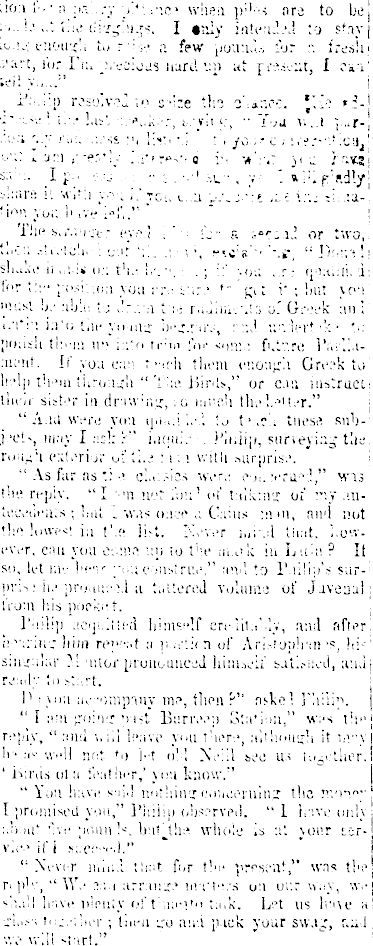 tion for a paltry pittance when piles are to be
at the diggings. I only intended to stay
long enough to raise a few pounds for a fresh
start, for I'm precious hard up at present, I can
tell you."
Philip resolved to seize the chance. He ad-
dressed the last speaker, saying, "You will par-
don my rudeness in listening to your conversation,
but I am greatly interested in what you have
said. I will gladly
share it with you if you can procure me the situa-
tion you have left."
The stranger eyed him for a second or two,
then stretched out his hand, exclaiming, "Done!
shake hands on the bargain; if you are qualified
for the position you are sure to get it; but you
must be able to drum the rudiments of Greek and
Latin into the young beggars, and undertake to
polish them up into trim for some future Parlia-
ment. If you can teach them enough Greek to
help them through "The Birds," or can instruct
their sister in drawing, so much the better."
"And were you qualified to teach these sub-
jects, may I ask?" inquired Philip, surveying the
rough exterior of the man with surprise.
"As far as the classics were concerned," was
the reply. "I am not fond of talking of my an-
tecedents; but I was once a Caius man, and not
the lowest in the list. Never mind that, how-
ever, can you come up to the mark in Latin? If
so, let me hear you construe," and to Philip's sur-
prise he produced a tattered volume of Juvenal
from his pocket.
Philip acquitted himself creditably, and after
hearing him repeat a portion of Aristophanes, his
singular Mentor pronounced himself satisfied, and
ready to start.
Do you accompany me, then?" asked Philip.
"I am going past Burreep Station," was the
reply, "and will leave you there, although it may
be as well not to let old Neill see us together.
'Birds of a feather,' you know."
"You have said nothing concerning the money
I promised you," Philip observed. "I have only
about five pounds, but the whole is at your ser-
vice if I succeed."
"Never mind that for the present," was the
reply, "We can arrange matters on our way, we
shall have plenty of time to talk. Let us have a
glass together; then go and pack your swag, and
we will start."